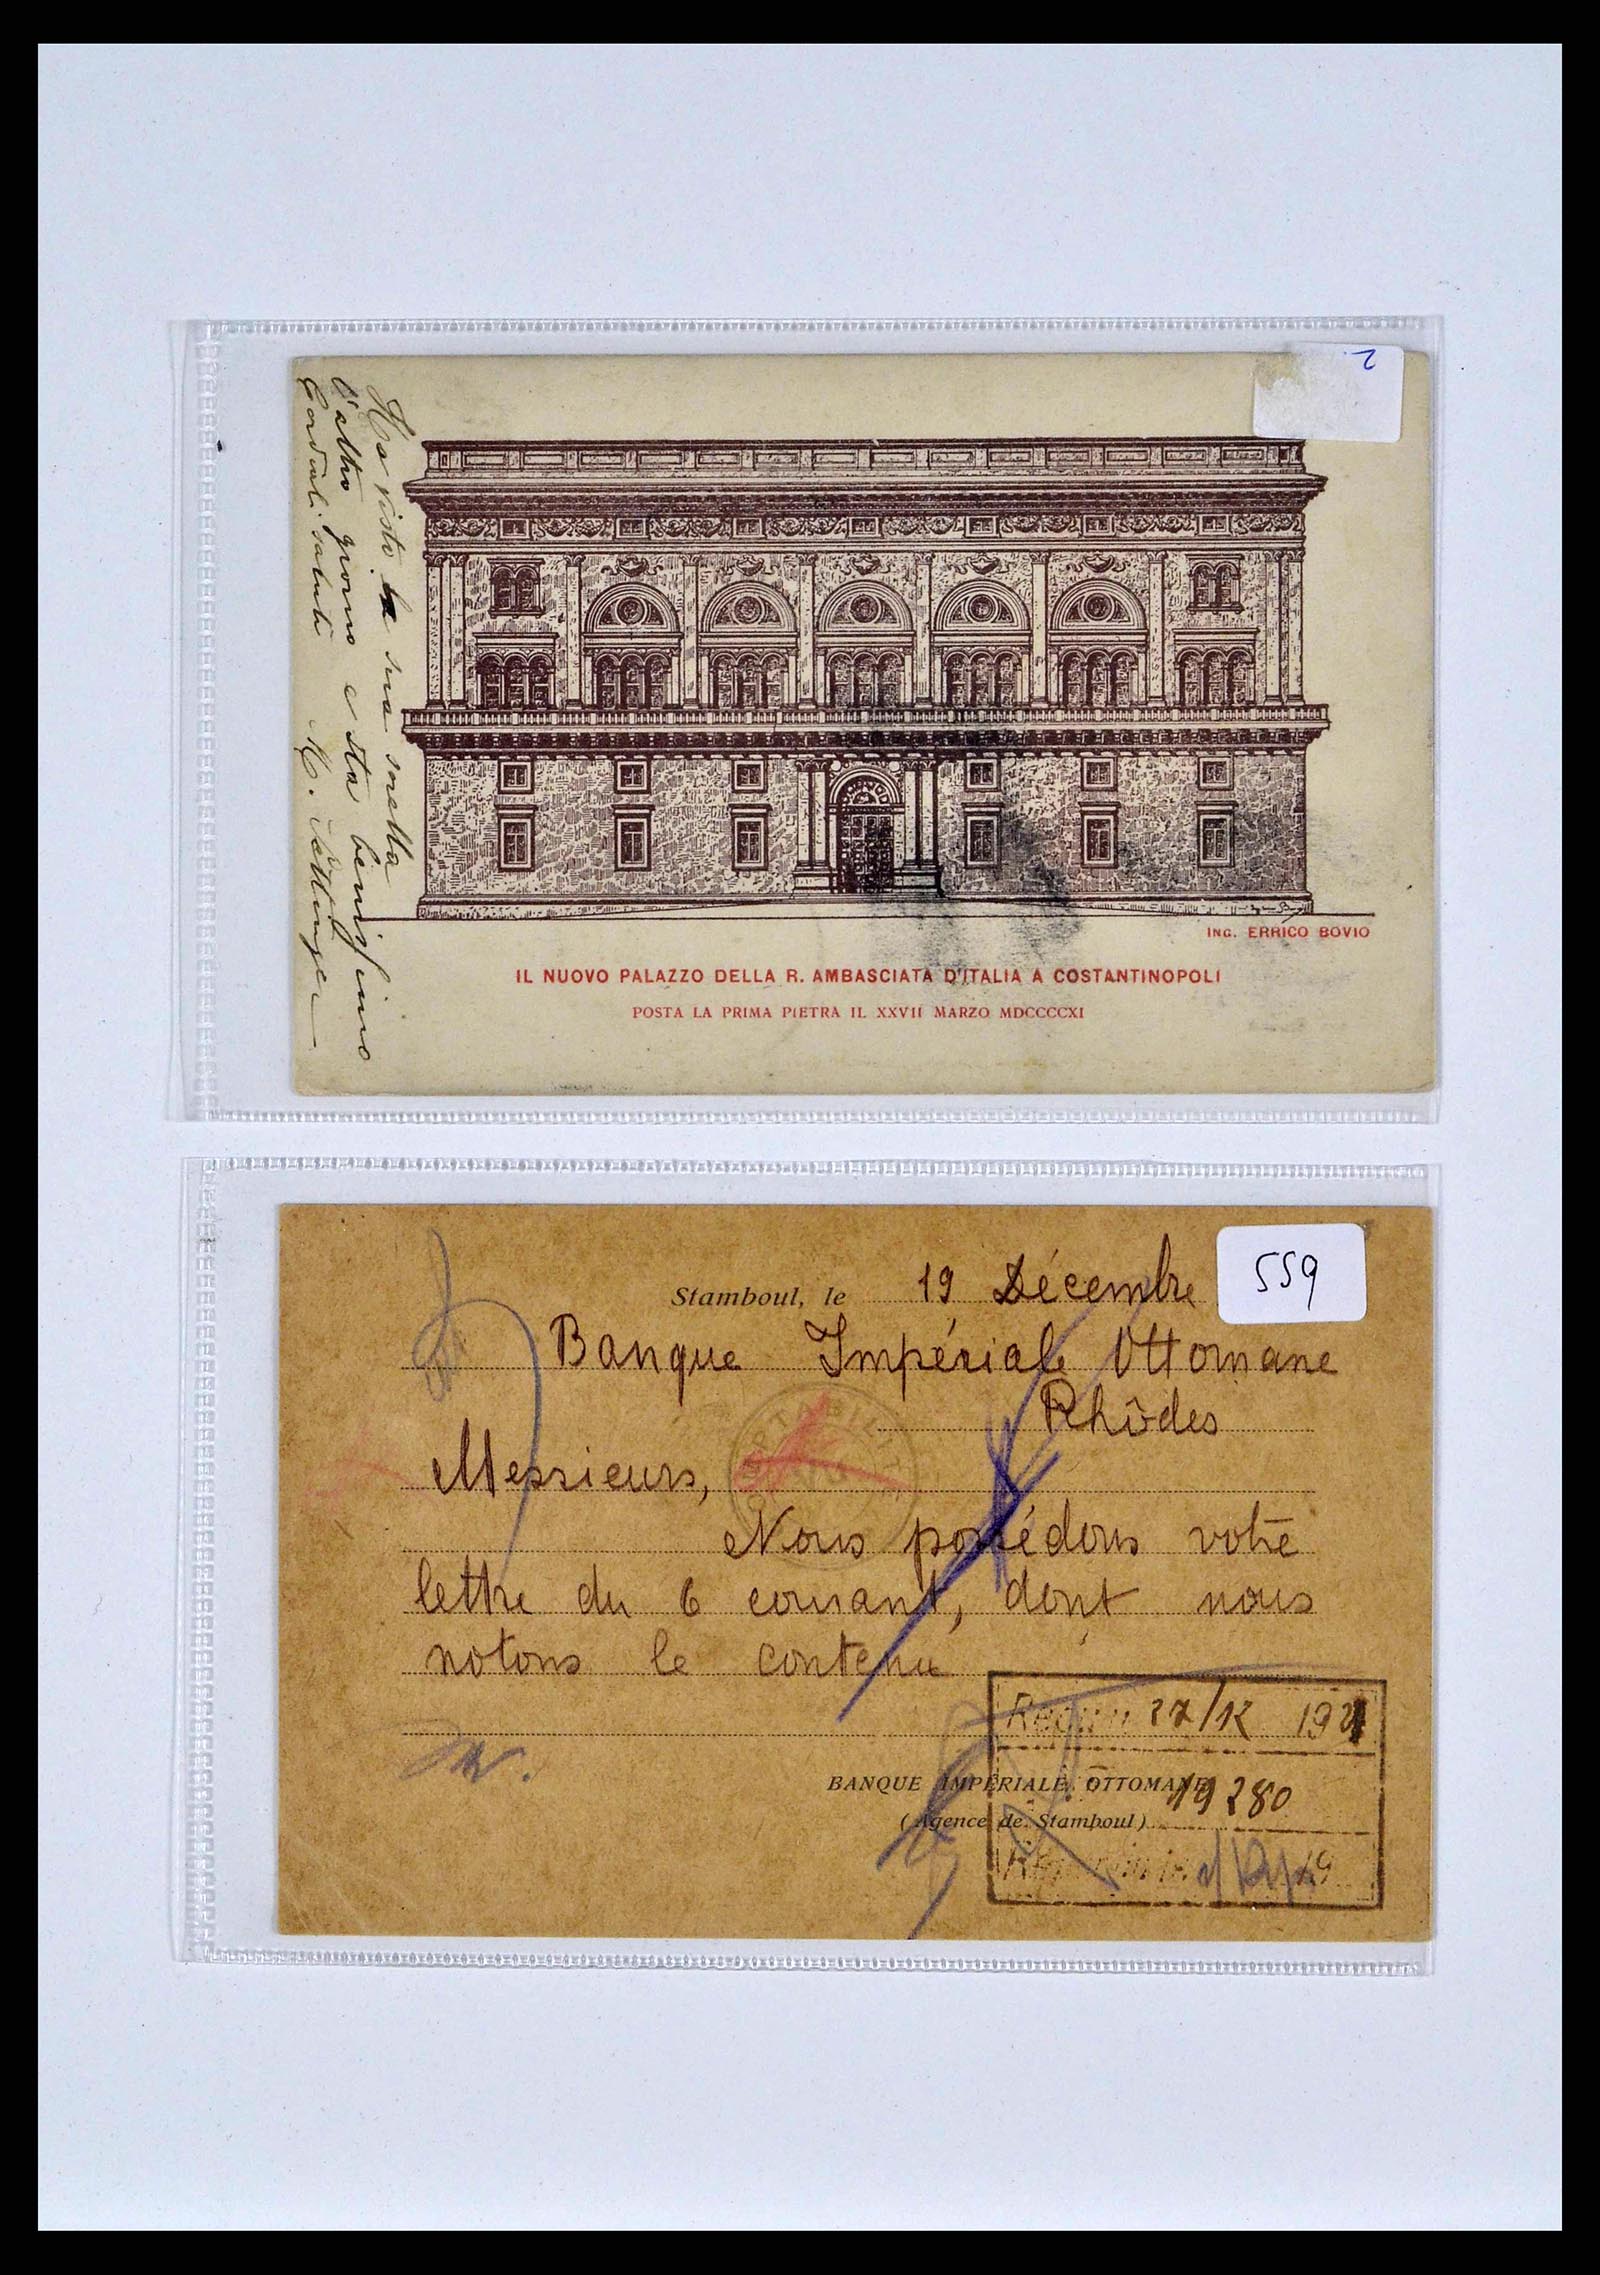 2.
Ho visto la sua sorella
l'altro giorno e sta benissimo
Cordiali saluti M.
ING. ERRICO BOVIO
IL NUOVO PALAZZO DELLA R. AMBASCIATA D'ITALIA A COSTANTINOPOLI
POSTA LA PRIMA PIETRA IL XXVII MARZO MDCCCCXI
559
Stamboul, le 19 Décembre
Banque Impériale Ottomane
Rhôdes
Messieurs,
Nous possédons votre
lettre du 6 courant, dont nous
notons le contenu
Reçu 27/12 1921
BANQUE IMPÉRIALE OTTOMANE
19280
(Agence de Stamboul)
19